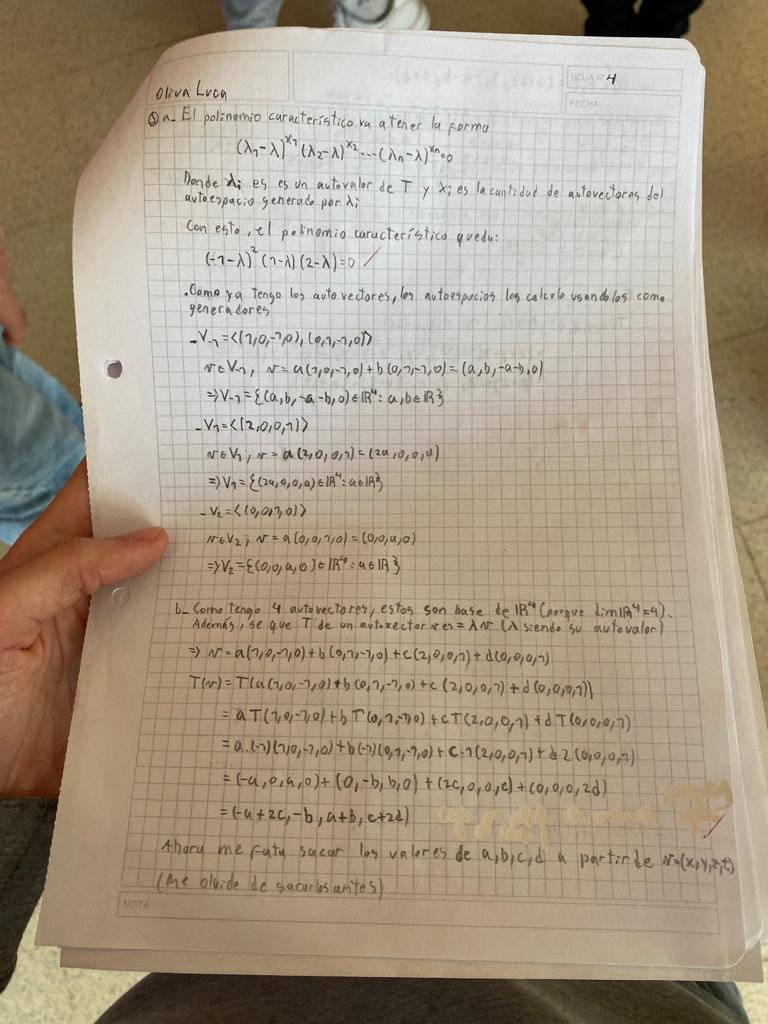 Oliva Luca
HOJA Nº 4
FECHA
⑤ a_ El polinomio característico va a tener la forma
(λ₁-λ)^x₁ (λ₂-λ)^x₂ ... (λn-λ)^xn=0
Donde λi es es un autovalor de T y xi es la cantidad de autovectores del
autoespacio generado por λi
Con esto, el polinomio característico queda:
(-1-λ)² (1-λ) (2-λ)=0
.Como ya tengo los autovectores, los autoespacios los calculo usandolos como
generadores
_V₋₁=<(1,0,-1,0), (0,1,-1,0)>
v∈V₋₁, v= a(1,0,-1,0)+b(0,1,-1,0)=(a,b,-a-b,0)
⇒V₋₁={(a,b,-a-b,0)∈ℝ⁴: a,b∈ℝ}
_V₁=<(2,0,0,1)>
v∈V₁, v= a(2,0,0,1)=(2a,0,0,a)
⇒V₁={(2a,0,0,a)∈ℝ⁴: a∈ℝ}
_V₂=<(0,0,1,0)>
v∈V₂, v=a(0,0,1,0)=(0,0,a,0)
⇒V₂={(0,0,a,0)∈ℝ⁴: a∈ℝ}
b_ Como tengo 4 autovectores, estos son base de ℝ⁴ (porque dimℝ⁴=4).
Además, se que T de un autovector v es = λv (λ siendo su autovalor)
⇒ v=a(1,0,-1,0)+b(0,1,-1,0)+c(2,0,0,1)+d(0,0,0,1)
T(v)=T(a(1,0,-1,0)+b(0,1,-1,0)+c(2,0,0,1)+d(0,0,0,1))
=aT(1,0,-1,0)+bT(0,1,-1,0)+cT(2,0,0,1)+dT(0,0,0,1)
=a.(-1)(1,0,-1,0)+b(-1)(0,1,-1,0)+c.1(2,0,0,1)+d.2(0,0,0,1)
=(-a,0,a,0)+(0,-b,b,0)+(2c,0,0,c)+(0,0,0,2d)
=(-a+2c,-b,a+b,c+2d)
Ahora me falta sacar los valores de a,b,c,d a partir de v=(x,y,z,t)
(me olvide de sacarlos antes)
NOTA